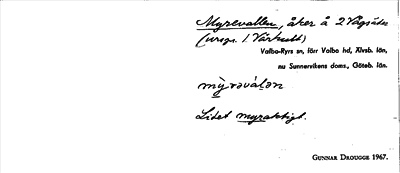 Myrevallen, åker å 2 Vågsäter
(urspr. 1 Vässhult)
Valbo-Ryrs sn, förr Valbo hd, Älvsb. län,
nu Sunnervikens doms., Göteb. län.
mỳrəválən
Litet myraktigt.
GUNNAR DROUGGE 1967.